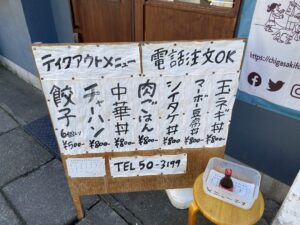 テイクアウトメニュー
電話注文OK
玉ネギ丼
¥800-
マーボー豆腐丼
¥800-
シイタケ丼
¥800-
肉ごはん
¥800-
中華丼
¥800-
チャーハン
¥800-
餃子
¥800-
TEL 50-3199
https://chigasakito